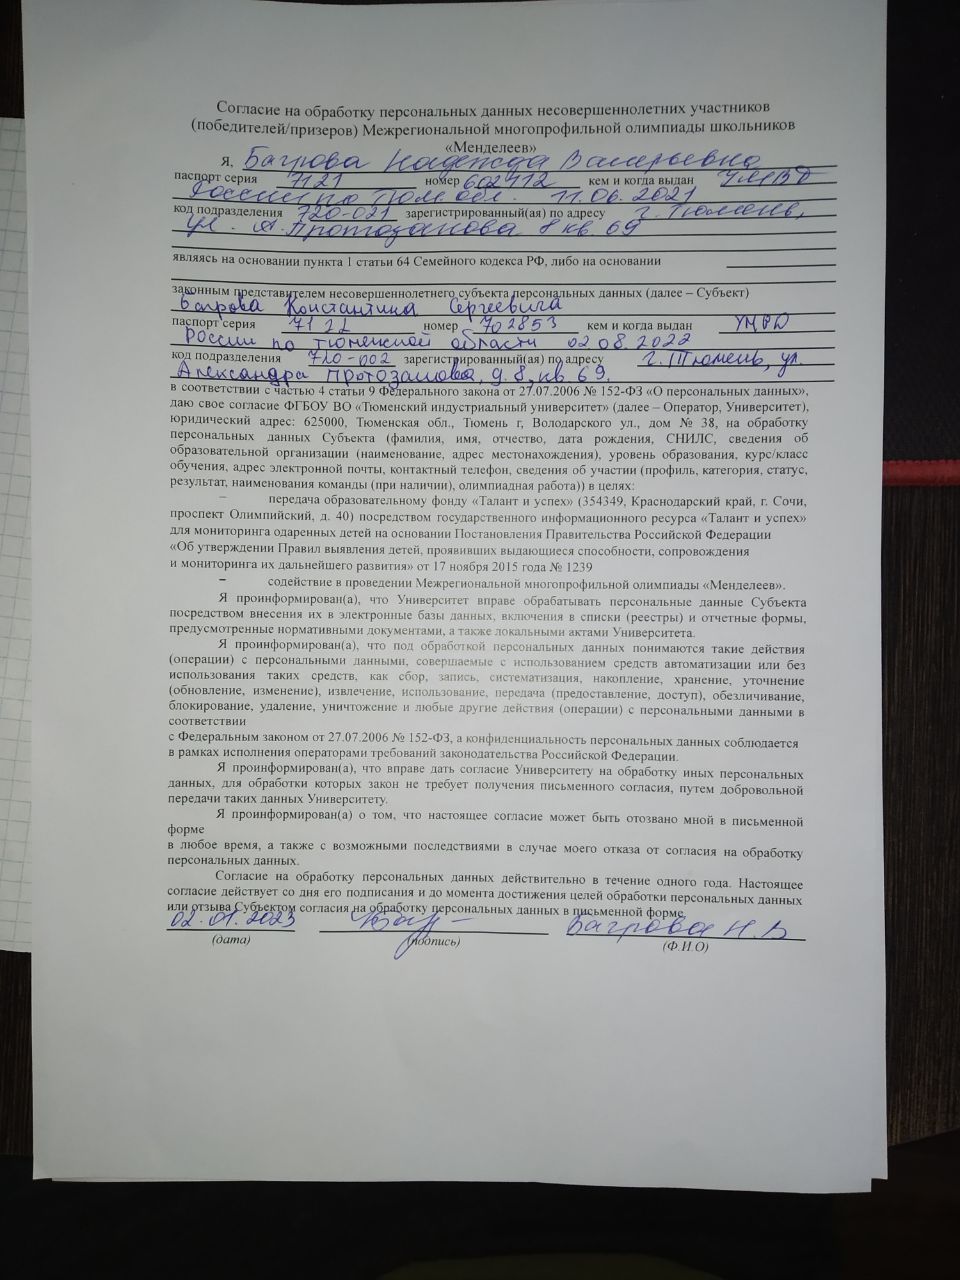 Согласие на обработку персональных данных несовершеннолетних участников
(победителей/призеров) Межрегиональной многопрофильной олимпиады школьников
«Менделеев»
Я, Багрова Надежда Валерьевна
паспорт серия 7121 номер 602412 кем и когда выдан УМВД
России по Тюм. обл. 11.06.2021
код подразделения 720-021 зарегистрированный(ая) по адресу г. Тюмень,
ул. А. Протозанова 8 кв. 69
являясь на основании пункта 1 статьи 64 Семейного кодекса РФ, либо на основании
законным представителем несовершеннолетнего субъекта персональных данных (далее – Субъект)
Багрова Константина Сергеевича
паспорт серия 7122 номер 702853 кем и когда выдан УМВД
России по Тюменской области 02.08.2022
код подразделения 720-002 зарегистрированный(ая) по адресу г. Тюмень, ул.
Александра Протозанова, д. 8, кв. 69.
в соответствии с частью 4 статьи 9 Федерального закона от 27.07.2006 № 152-ФЗ «О персональных данных»,
даю свое согласие ФГБОУ ВО «Тюменский индустриальный университет» (далее – Оператор, Университет),
юридический адрес: 625000, Тюменская обл., Тюмень г, Володарского ул., дом № 38, на обработку
персональных данных Субъекта (фамилия, имя, отчество, дата рождения, СНИЛС, сведения об
образовательной организации (наименование, адрес местонахождения), уровень образования, курс/класс
обучения, адрес электронной почты, контактный телефон, сведения об участии (профиль, категория, статус,
результат, наименования команды (при наличии), олимпиадная работа)) в целях:
– передача образовательному фонду «Талант и успех» (354349, Краснодарский край, г. Сочи,
проспект Олимпийский, д. 40) посредством государственного информационного ресурса «Талант и успех»
для мониторинга одаренных детей на основании Постановления Правительства Российской Федерации
«Об утверждении Правил выявления детей, проявивших выдающиеся способности, сопровождения
и мониторинга их дальнейшего развития» от 17 ноября 2015 года № 1239
– содействие в проведении Межрегиональной многопрофильной олимпиады «Менделеев».
Я проинформирован(а), что Университет вправе обрабатывать персональные данные Субъекта
посредством внесения их в электронные базы данных, включения в списки (реестры) и отчетные формы,
предусмотренные нормативными документами, а также локальными актами Университета.
Я проинформирован(а), что под обработкой персональных данных понимаются такие действия
(операции) с персональными данными, совершаемые с использованием средств автоматизации или без
использования таких средств, как сбор, запись, систематизация, накопление, хранение, уточнение
(обновление, изменение), извлечение, использование, передача (предоставление, доступ), обезличивание,
блокирование, удаление, уничтожение и любые другие действия (операции) с персональными данными в
соответствии
с Федеральным законом от 27.07.2006 № 152-ФЗ, а конфиденциальность персональных данных соблюдается
в рамках исполнения операторами требований законодательства Российской Федерации.
Я проинформирован(а), что вправе дать согласие Университету на обработку иных персональных
данных, для обработки которых закон не требует получения письменного согласия, путем добровольной
передачи таких данных Университету.
Я проинформирован(а) о том, что настоящее согласие может быть отозвано мной в письменной
форме
в любое время, а также с возможными последствиями в случае моего отказа от согласия на обработку
персональных данных.
Согласие на обработку персональных данных действительно в течение одного года. Настоящее
согласие действует со дня его подписания и до момента достижения целей обработки персональных данных
или отзыва Субъектом согласия на обработку персональных данных в письменной форме.
02.01.2023 Багрова Н.В
(дата) (подпись) (Ф.И.О)